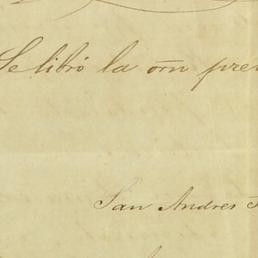 Se libró la orn
San Andres